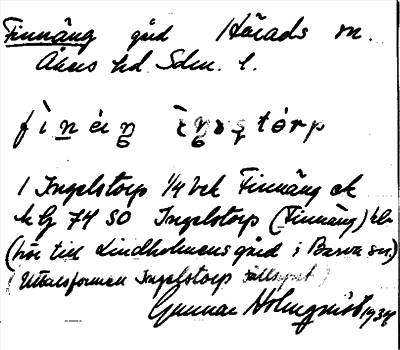 Finnäng gård Härads sn.
Åkers hd Sdm. l.
fìnéŋ ìŋǝstórp
1 Ingelstorp 1/4 bek Finnäng ek
74 SO Ingelstorp (Finnäng)
(hör till Lindholmens gård i Barva sn)
(Uttalsformen Ingelstorp sällsynt)
Gunnar Holmgren 1934